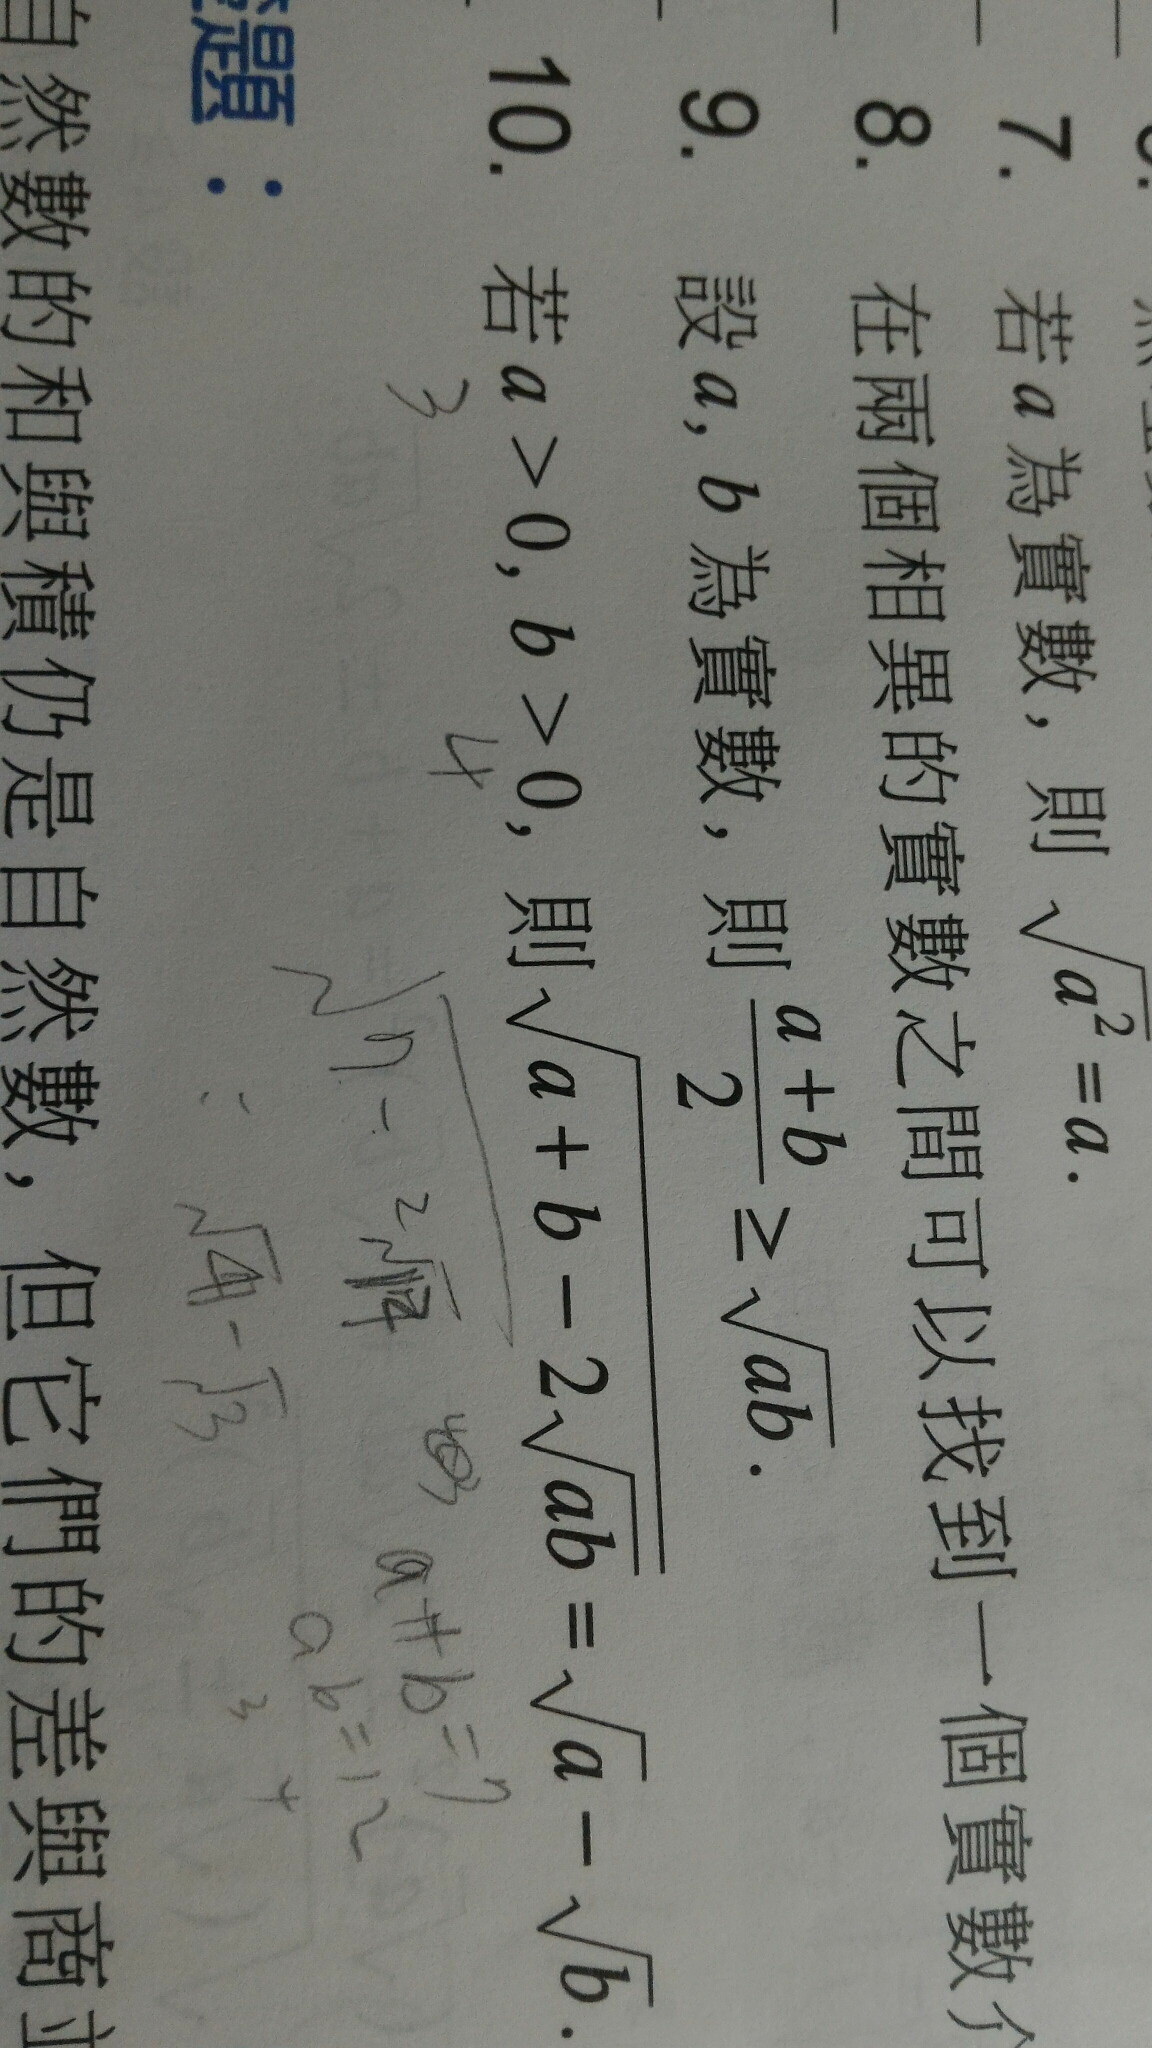 7. 若 a 為實數, 則 √a² = a.
8. 在兩個相異的實數之間可以找到一個實數介
9. 設 a, b 為實數, 則 (a+b)/2 ≥ √ab.
10. 若 a > 0, b > 0, 則 √(a + b − 2√ab) = √a − √b.
3 4
a+b=7
ab=12
3 4
√4 − √3
題：
自然數的和與積仍是自然數, 但它們的差與商並